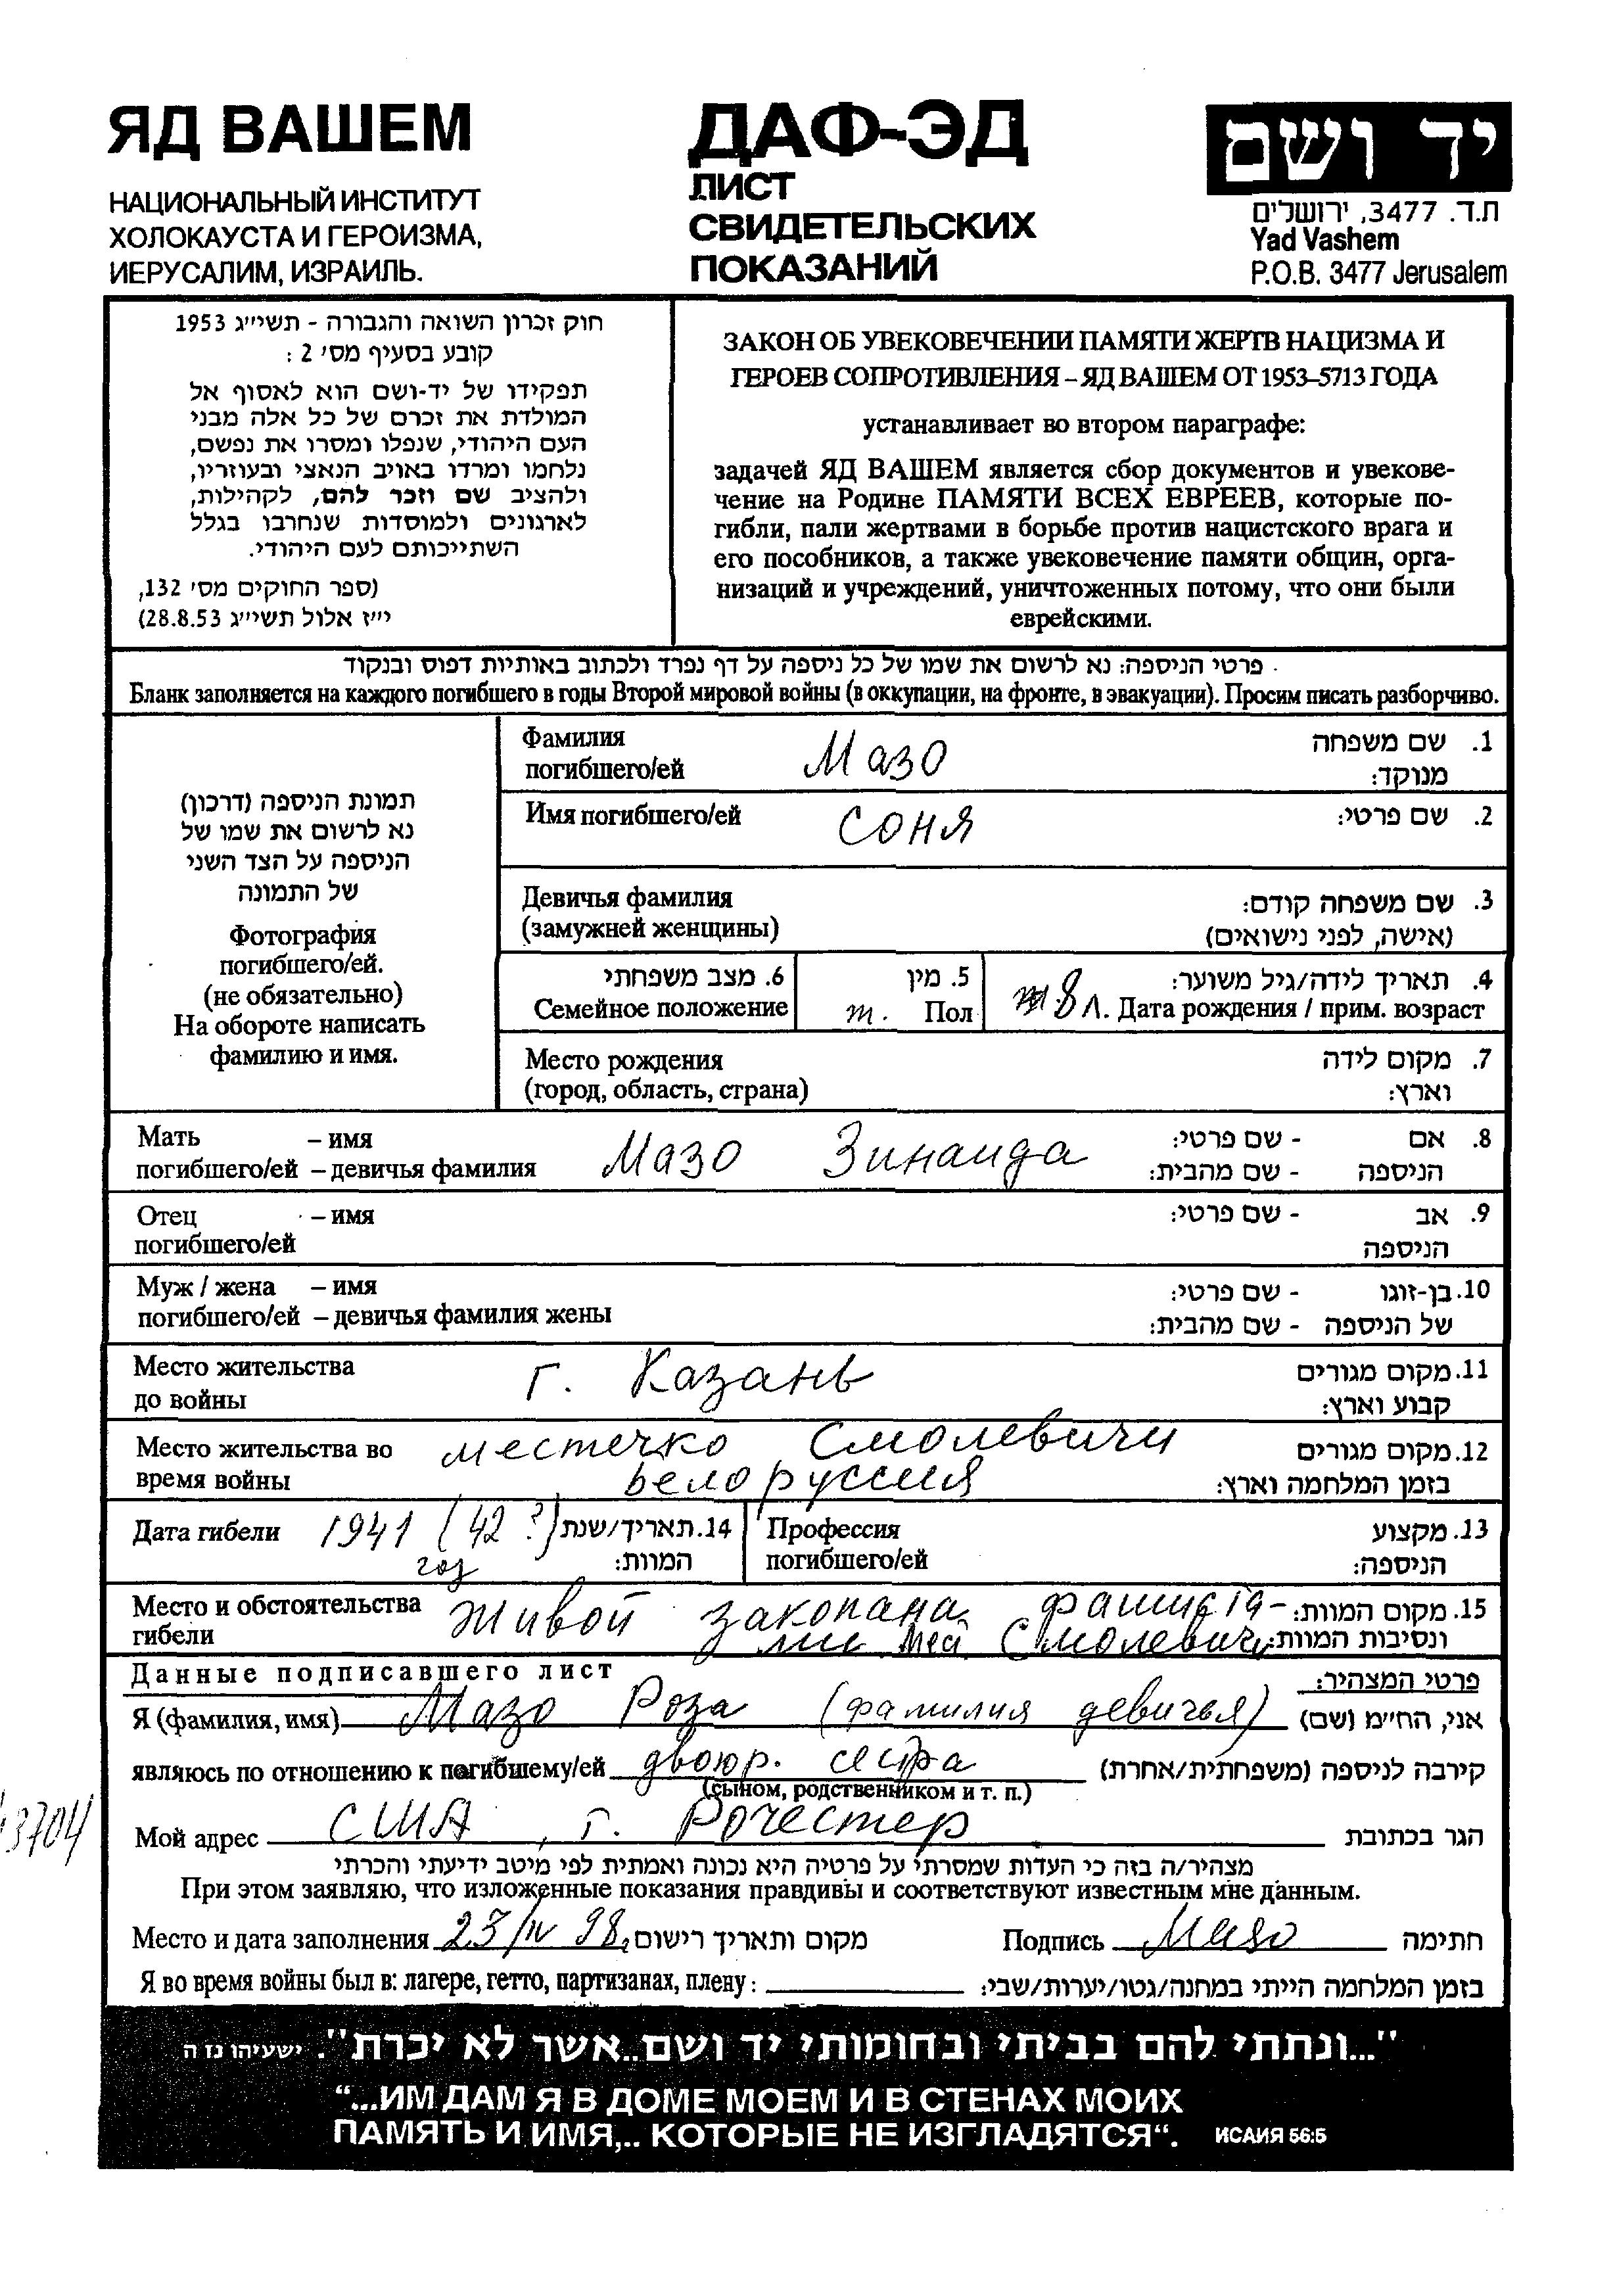 ЯД ВАШЕМ
НАЦИОНАЛЬНЫЙ ИНСТИТУТ
ХОЛОКАУСТА И ГЕРОИЗМА,
ИЕРУСАЛИМ, ИЗРАИЛЬ.
ДАФ-ЭД
ЛИСТ
СВИДЕТЕЛЬСКИХ
ПОКАЗАНИЙ
יד ושם
ת.ד. 3477, ירושלים
Yad Vashem
P.O.B. 3477 Jerusalem
חוק זכרון השואה והגבורה - תשי״ג 1953
קובע בסעיף מס׳ 2 :
תפקידו של יד-ושם הוא לאסוף אל
המולדת את זכרם של כל אלה מבני
העם היהודי, שנפלו ומסרו את נפשם,
נלחמו ומרדו באויב הנאצי ובעוזריו,
ולהציב שם וזכר להם, לקהילות,
לארגונים ולמוסדות שנחרבו בגלל
השתייכותם לעם היהודי.
(ספר החוקים מס׳ 132,
י״ז אלול תשי״ג 28.8.53)
ЗАКОН ОБ УВЕКОВЕЧЕНИИ ПАМЯТИ ЖЕРТВ НАЦИЗМА И
ГЕРОЕВ СОПРОТИВЛЕНИЯ – ЯД ВАШЕМ ОТ 1953–5713 ГОДА
устанавливает во втором параграфе:
задачей ЯД ВАШЕМ является сбор документов и увекове-
чение на Родине ПАМЯТИ ВСЕХ ЕВРЕЕВ, которые по-
гибли, пали жертвами в борьбе против нацистского врага и
его пособников, а также увековечение памяти общин, орга-
низаций и учреждений, уничтоженных потому, что они были
еврейскими.
פרטי הניספה: נא לרשום את שמו של כל ניספה על דף נפרד ולכתוב באותיות דפוס ובנקוד
Бланк заполняется на каждого погибшего в годы Второй мировой войны (в оккупации, на фронте, в эвакуации). Просим писать разборчиво.
תמונת הניספה (דרכון)
נא לרשום את שמו של
הניספה על הצד השני
של התמונה
Фотография
погибшего/ей.
(не обязательно)
На обороте написать
фамилию и имя.
Фамилия Мазо 1. שם משפחה
погибшего/ей מנוקד:
Имя погибшего/ей Соня 2. שם פרטי:
Девичья фамилия 3. שם משפחה קודם:
(замужней женщины) (אישה, לפני נישואים)
6. מצב משפחתי 5. מין 4. תאריך לידה/גיל משוער:
Семейное положение ж. Пол 8 л. Дата рождения / прим. возраст
Место рождения 7. מקום לידה
(город, область, страна) וארץ:
Мать – имя - שם פרטי: 8. אם
погибшего/ей – девичья фамилия Мазо Зинаида - שם מהבית: הניספה
Отец – имя - שם פרטי: 9. אב
погибшего/ей הניספה
Муж / жена – имя - שם פרטי: 10. בן-זוגו
погибшего/ей – девичья фамилия жены - שם מהבית: של הניספה
Место жительства г. Казань 11. מקום מגורים
до войны קבוע וארץ:
Место жительства во местечко Смолевичи 12. מקום מגורים
время войны Белоруссия בזמן המלחמה וארץ:
Дата гибели 1941 (42 ?) 14. תאריך/שנת Профессия 13. מקצוע
год המוות: погибшего/ей הניספה:
Место и обстоятельства Живой закопана фашиста- 15. מקום המוות:
гибели ми. Смолевичи ונסיבות המוות:
Данные подписавшего лист פרטי המצהיר:
Я (фамилия, имя) Мазо Роза (фамилия девичья) אני, הח״מ (שם)
являюсь по отношению к погибшему/ей двоюр. сестра קירבה לניספה (משפחתית/אחרת)
(сыном, родственником и т. п.)
Мой адрес США, г. Рочестер הגר בכתובת
3704
מצהיר/ה בזה כי העדות שמסרתי על פרטיה היא נכונה ואמתית לפי מיטב ידיעתי והכרתי
При этом заявляю, что изложенные показания правдивы и соответствуют известным мне данным.
Место и дата заполнения 23/IV 98 מקום ותאריך רישום Подпись Мазо חתימה
Я во время войны был в: лагере, гетто, партизанах, плену: בזמן המלחמה הייתי במחנה/גטו/יערות/שבי:
"...ונתתי להם בביתי ובחומותי יד ושם..אשר לא יכרת". ישעיהו נז ה
“...ИМ ДАМ Я В ДОМЕ МОЕМ И В СТЕНАХ МОИХ
ПАМЯТЬ И ИМЯ,.. КОТОРЫЕ НЕ ИЗГЛАДЯТСЯ“. ИСАИЯ 56:5